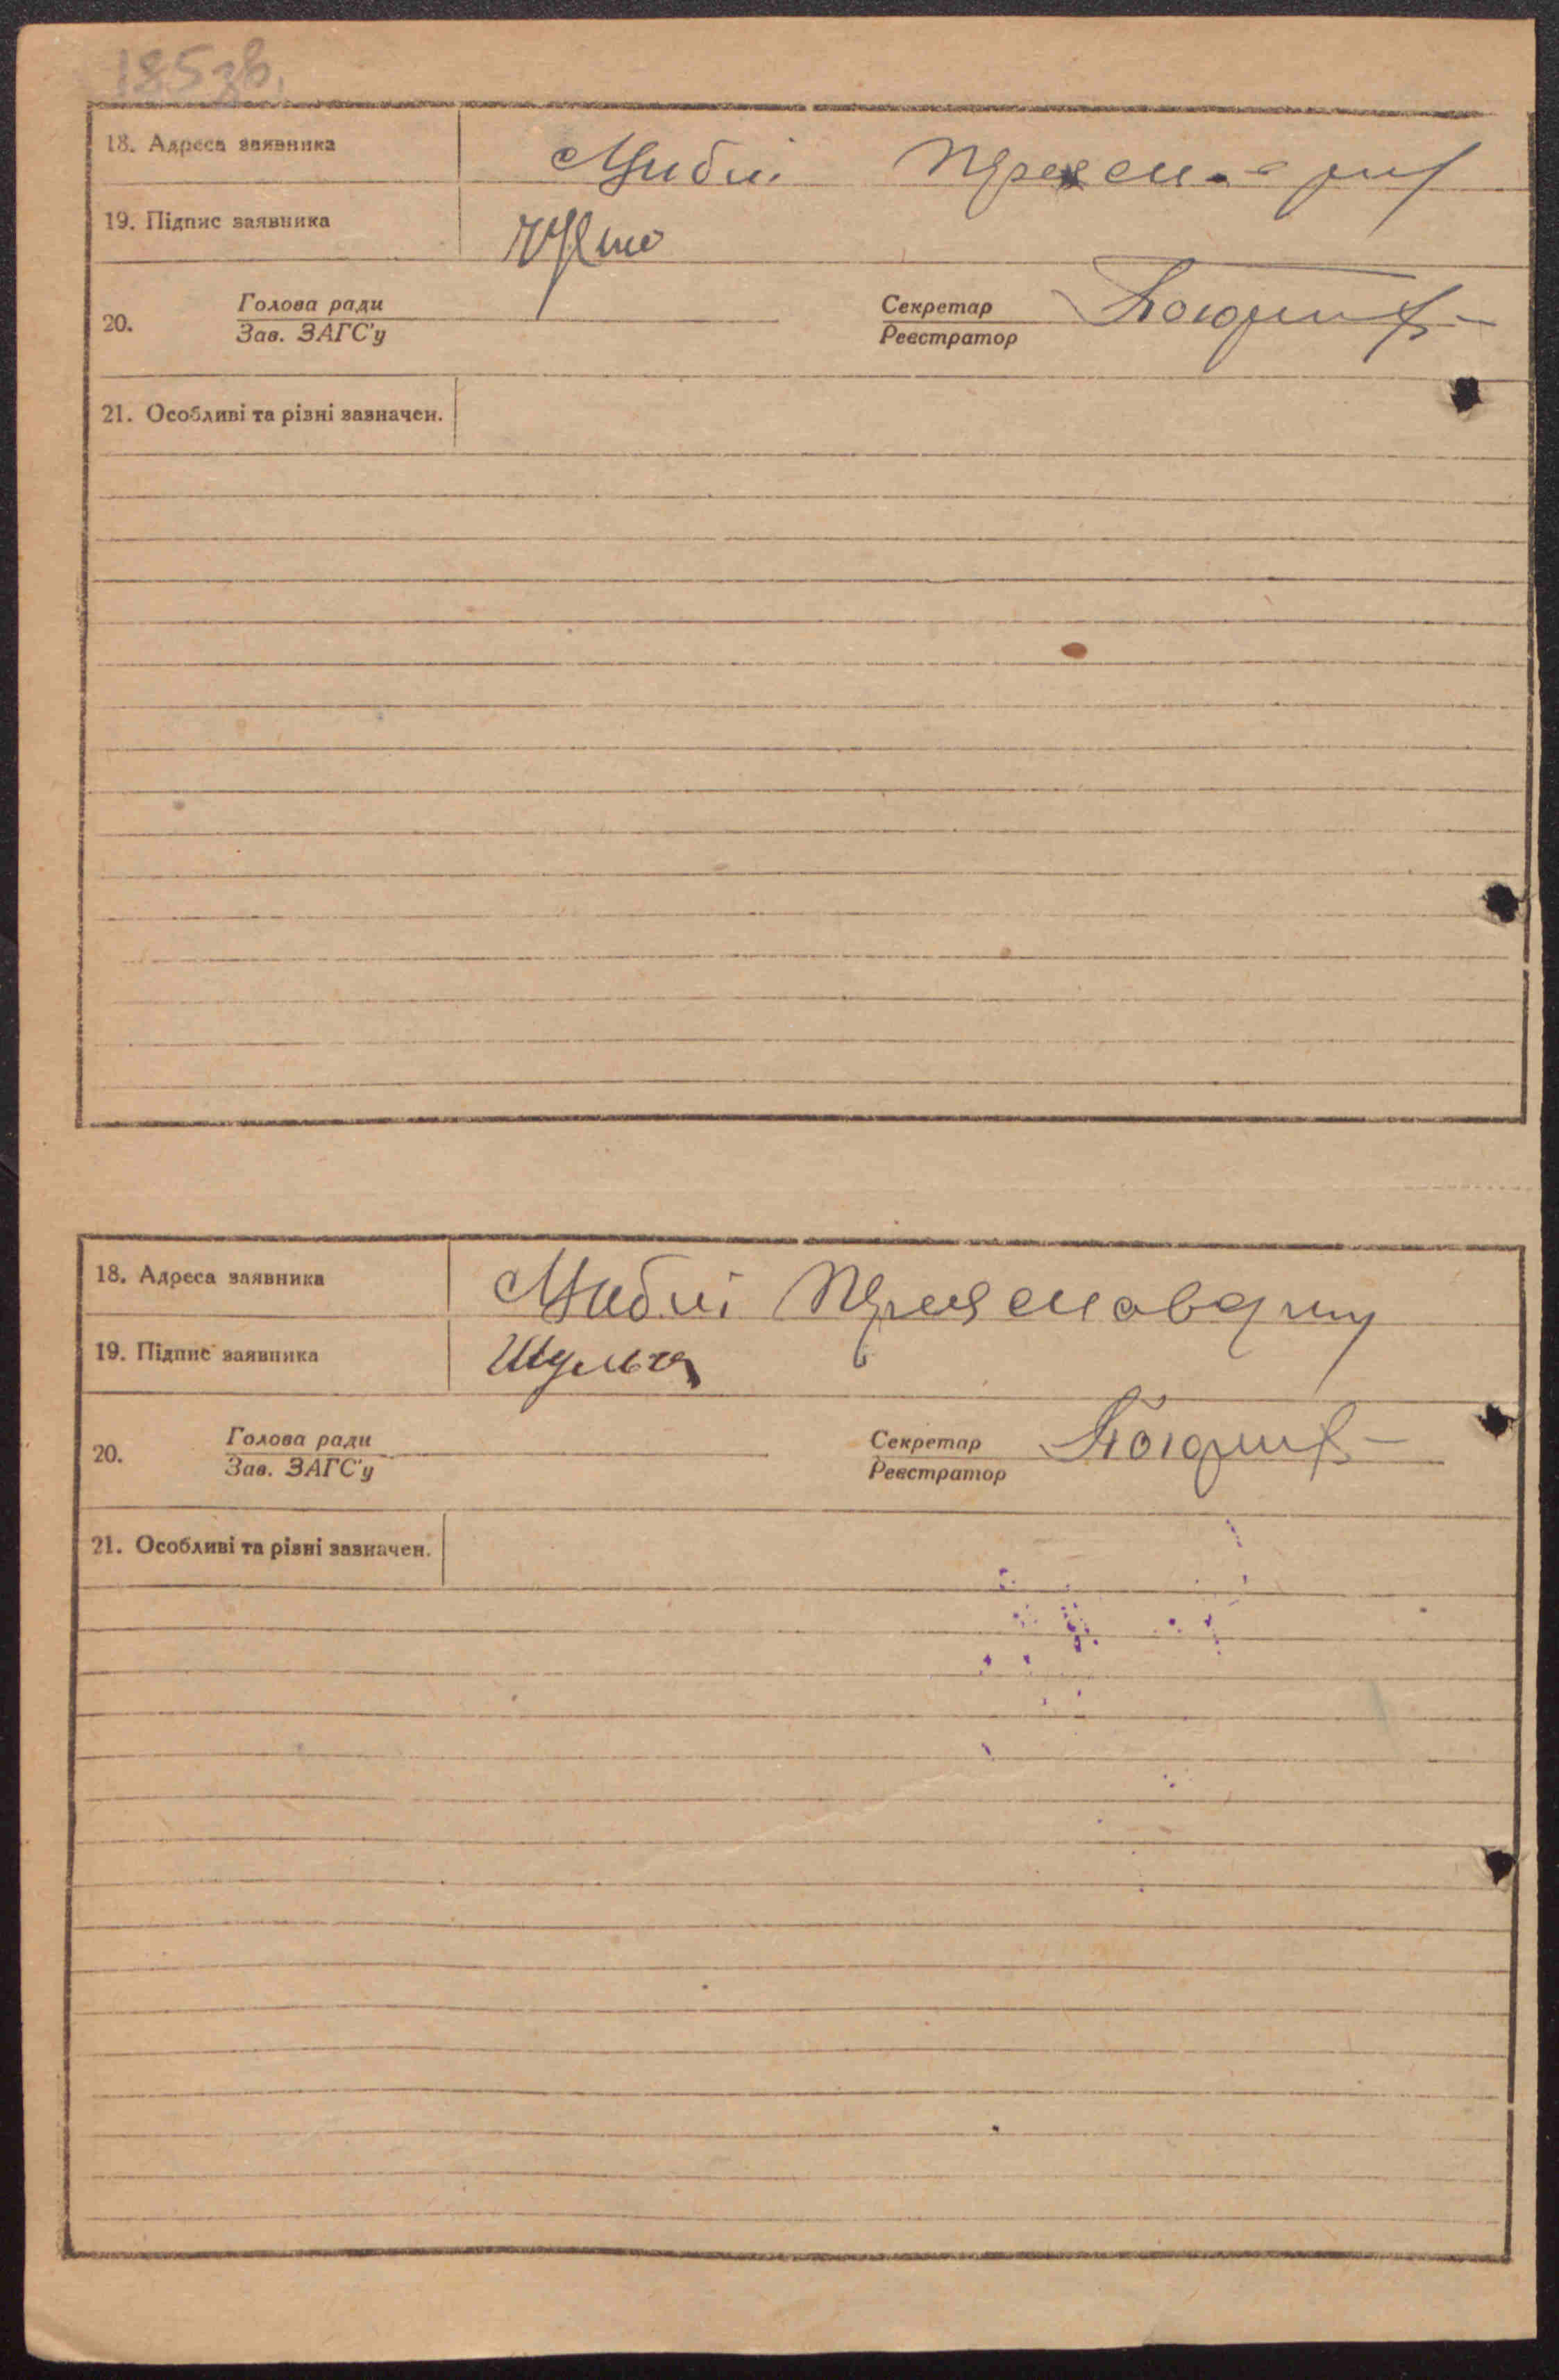 185зв.
18. Адреса заявника Циблі
19. Підпис заявника
20. Голова ради Секретар
Зав. ЗАГС'у Реєстратор
21. Особливі та різні зазначен.
18. Адреса заявника Циблі
19. Підпис заявника Шульга
20. Голова ради Секретар
Зав. ЗАГС'у Реєстратор
21. Особливі та різні зазначен.